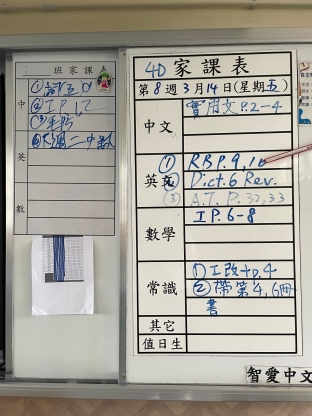 班家課表
中
英
數
4D 家課表
第8週3月14日(星期五)
中文
實用文P.2-4
英文
① RBP.9,10
② Dict.6 Rev.
③ A.T. P.32,33
數學
IP.6-8
常識
① 工改+p.4
② 帶第4,6冊
書
其它
值日生
智愛中文